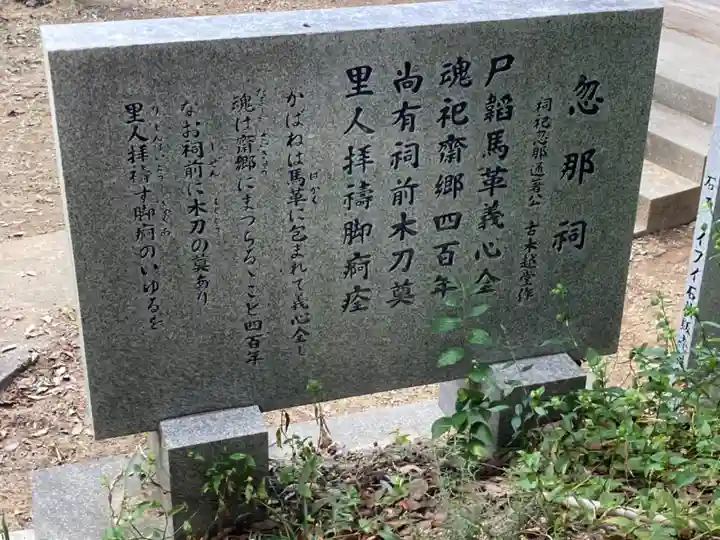 忽那祠
祠祀忽那通著公 古木越堂作
尸韜馬革義心全
魂祀齋郷四百年
尚有祠前木刀奠
里人拝禱脚痾痊
かばねは馬革に包まれて義心全し
ばかく
魂は齋郷にまつらるゝこと四百年
なお祠前に木刀の奠あり
しぜん
里人拝禱す脚痾のいゆるを